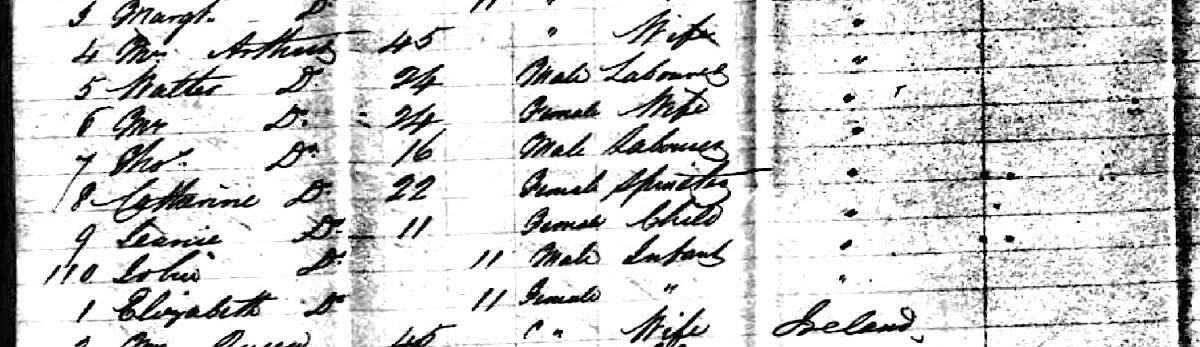 3 Margt. Do 11 "
4 Mrs Arthur 45 " Wife "
5 Walter Do 24 Male Labourer "
6 Mrs Do 24 Female Wife "
7 Thos. Do 16 Male Labourer "
8 Catharine Do 22 Female Spinster "
9 Jeanie Do 11 Female Child "
110 John Do 11 Male Infant "
1 Elizabeth Do 11 Female " "
2 Mrs 45 " Wife Ireland